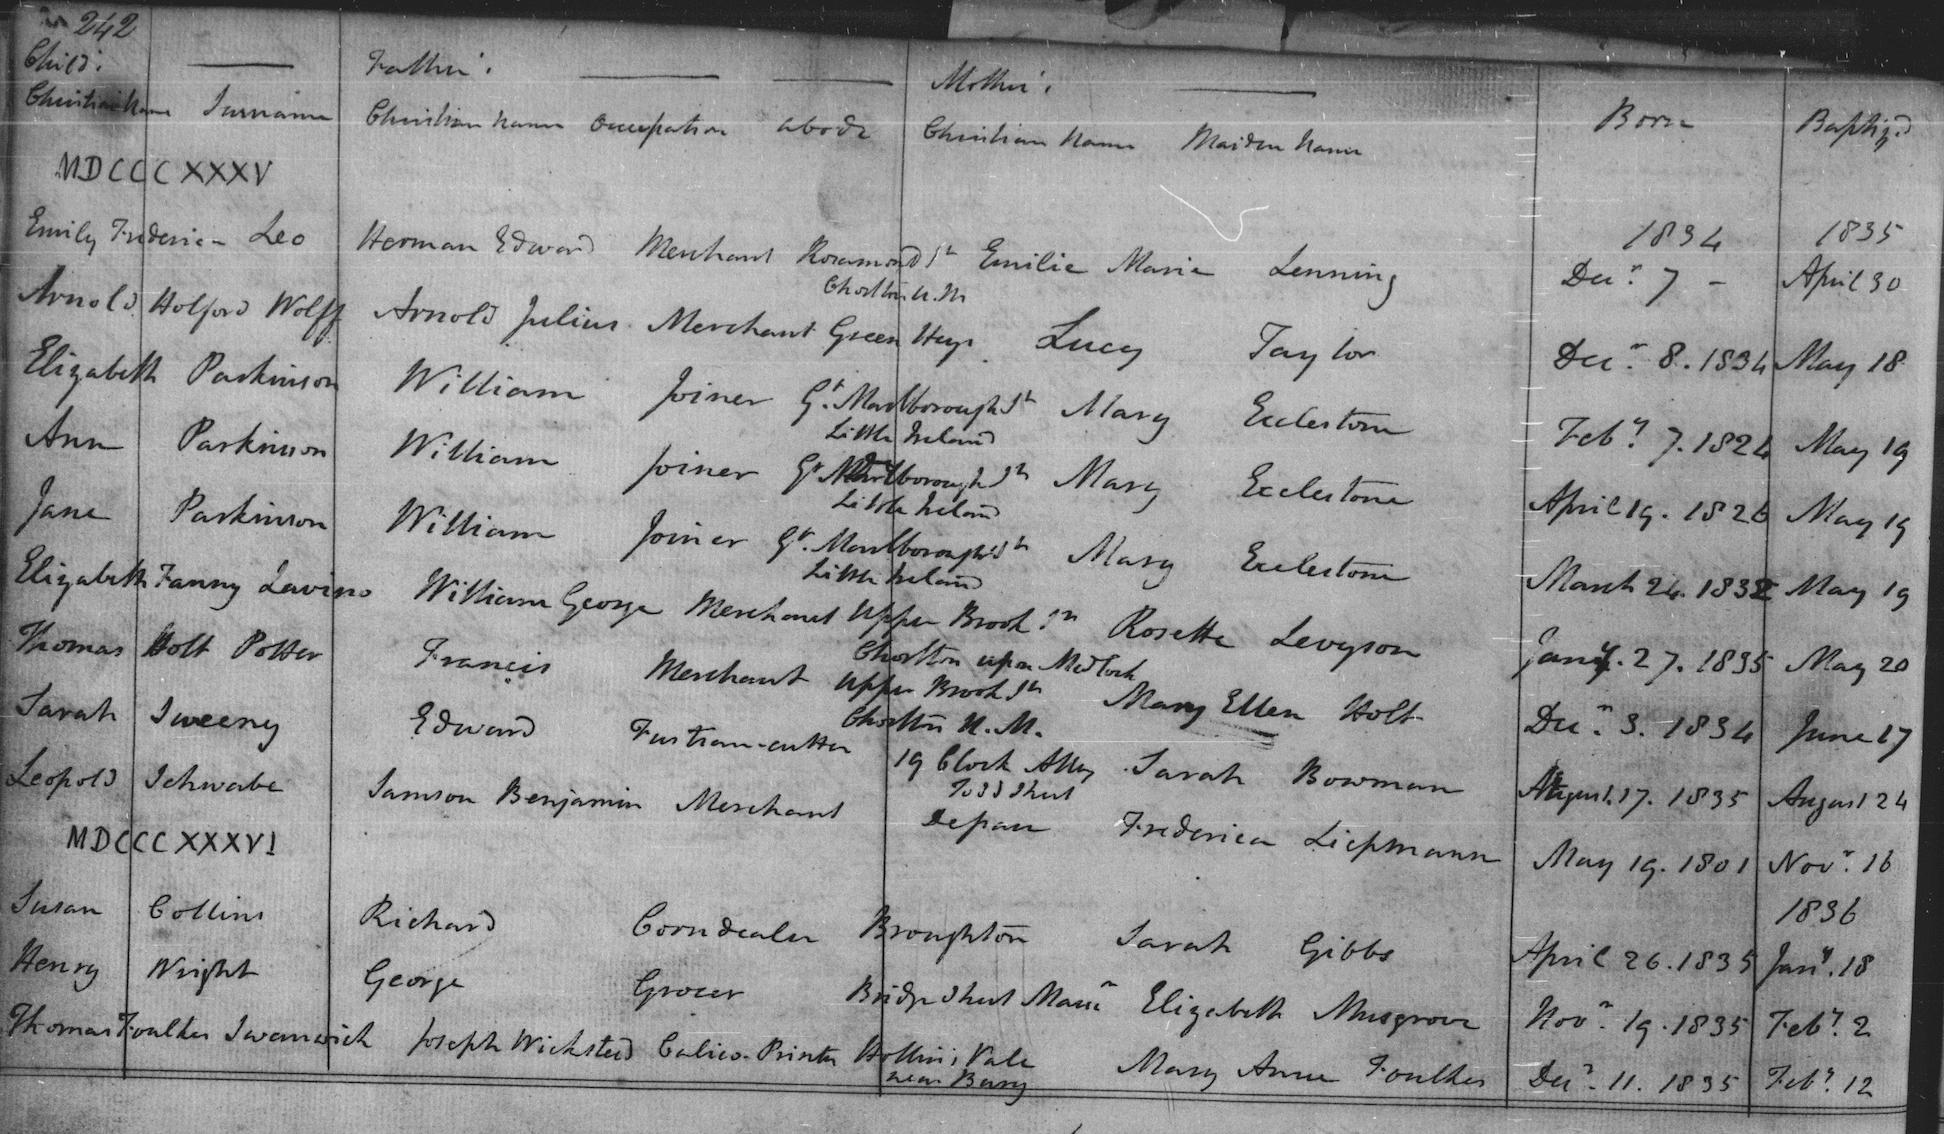 242
Child's Father's Mother's
Christian Name Surname Christian name Occupation abode Christian Name Maiden Name Born Baptizd
MDCCCXXXV
1834 1835
Emily Frederica Leo Herman Edward Merchant Rosamond St Emilie Marie Lenning Decr. 7 - April 30
Chorlton U.M
Arnold Holford Wolff Arnold Julius Merchant Green Heys Lucy Taylor Decr. 8. 1834 May 18
Elizabeth Parkinson William Joiner Gt. Marlborough St Mary Ecclestone Feby 7. 1824 May 19
Little Ireland
Ann Parkinson William Joiner Gt Marlborough St Mary Ecclestone April 19. 1826 May 19
Little Ireland
Jane Parkinson William Joiner Gt. Marlborough St Mary Ecclestone March 24. 1832 May 19
Little Ireland
Elizabeth Fanny Lavino William George Merchant Upper Brook St Rosette Levyson Jany. 27. 1835 May 20
Chorlton upon Medlock
Thomas Holt Potter Francis Merchant Upper Brook St Mary Ellen Holt Decr. 3. 1834 June 17
Chorlton U.M.
Sarah Sweeny Edward Fustian-cutter 19 Clock Alley Sarah Bowman August. 17. 1835 August 24
Todd Street
Leopold Schwabe Samson Benjamin Merchant Depau Frederica Liepmann May 19. 1801 Novr. 16
MDCCCXXXVI
1836
Susan Collins Richard Corn dealer Broughton Sarah Gibbs April 26. 1835 Jany. 18
Henry Wright George Grocer Bridge Street Manr Elizabeth Musgrove Novr. 19. 1835 Feby. 2
Thomas Foulkes Swanwick Joseph Wicksteed Calico-Printer Hollins Vale Mary Anne Foulkes Decr. 11. 1835 Feby. 12
near Bury